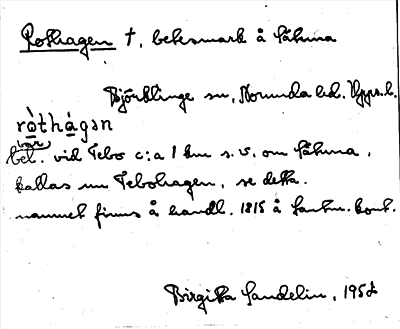 Rothagen †, betesmark å Såhma
Björklinge sn, Norunda hd. Upps. l.
ròthágən
var
bel. vid Tebo c:a 1 km s.v. om Såhma,
kallas nu Tebohagen, se detta.
namnet finns å handl. 1815 å Lantm. kont.
Birgitta Sandelin, 1952